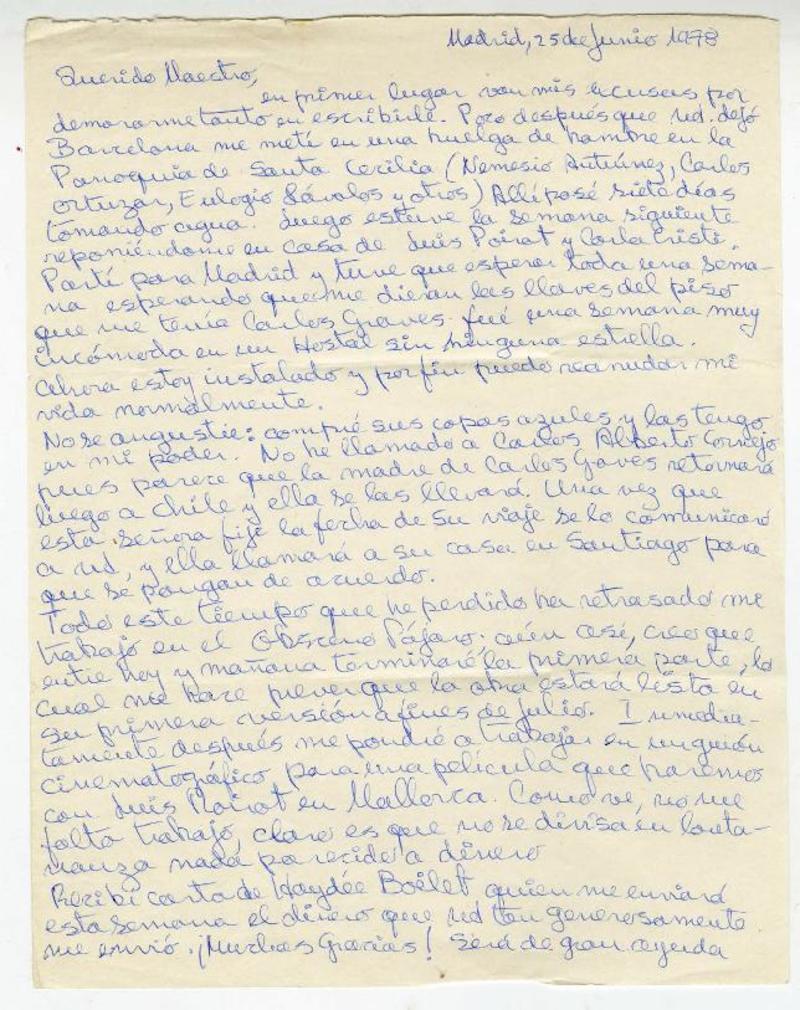 Madrid, 25 de Junio 1978
Querido Maestro,
en primer lugar van mis excusas por
demorarme tanto en escribirle. Poco después que Ud. dejó
Barcelona me metí en una huelga de hambre en la
Parroquia de Santa Cecilia (Nemesio Antúnez, Carlos
Ortuzar, Eulogio Dávalos y otros) Allí pasé siete días
tomando agua. Luego estuve la semana siguiente
reponiéndome en casa de Luis Poirot y Carla Cristi.
Partí para Madrid y tuve que esperar toda una sema-
na esperando que me dieran las llaves del piso
que me tenía Carlos Graves. Fué una semana muy
incómoda en un Hostal sin ninguna estrella.
Ahora estoy instalado y por fin puedo reanudar mi
vida normalmente.
No se angustie: compré sus copas azules y las tengo
en mi poder. No he llamado a Carlos Alberto Cornejo
pues parece que la madre de Carlos Graves retornará
luego a Chile y ella se las llevará. Una vez que
esta señora fije la fecha de su viaje se lo comunicaré
a Ud, y ella llamará a su casa en Santiago para
que se pongan de acuerdo.
Todo este tiempo que he perdido ha retrasado mi
trabajo en el Obsceno Pájaro; aún así, creo que
entre hoy y mañana terminaré la primera parte, lo
cual me hace prever que la otra estará lista en
su primera versión a fines de Julio. Inmedia-
tamente después me pondré a trabajar en un guión
cinematográfico para una película que haremos
con Luis Poirot en Mallorca. Como ve, no me
falta trabajo, claro es que no se divisa en lonta-
nanza nada parecido a dinero
Recibí carta de Haydée Boëlet quien me enviará
esta semana el dinero que Ud tan generosamente
me envió. ¡Muchas Gracias! Será de gran ayuda